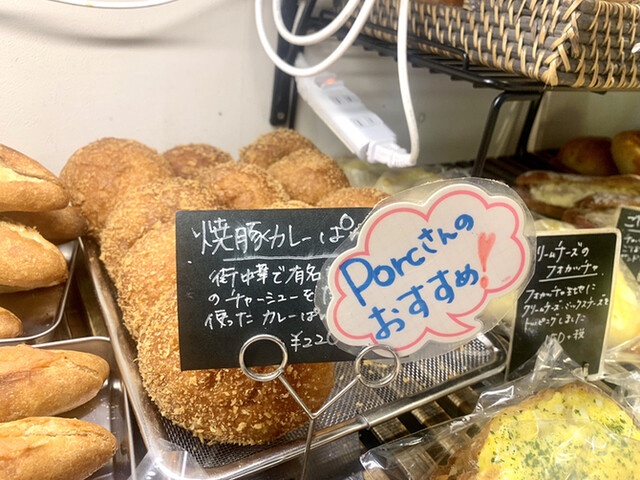 焼豚カレーぱ
街中華で有名
のチャーシューを
使ったカレーぱ
¥220
Porcさんの
おすすめ!
リームチーズの
フォカッチャ
フォカッチャ生地に
クリームチーズ、ミックスチーズを
トッピングしました
+税